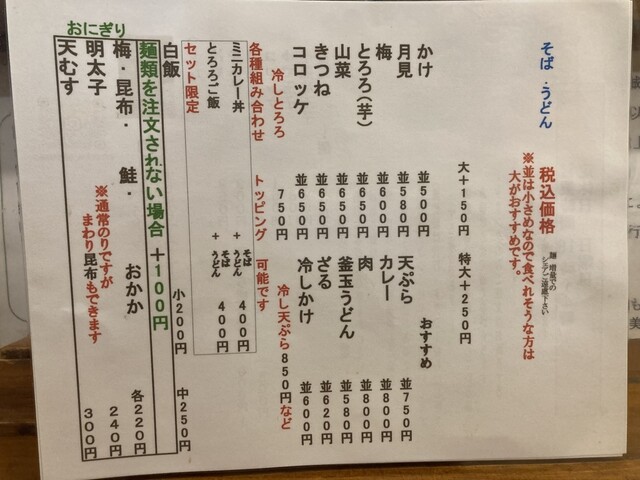 そば・うどん
税込価格 麺 増量での
シェアご遠慮下さい
※並は小さめなので食べれそうな方は
大がおすすめです。
大+150円 特大+250円
かけ 並500円 おすすめ
月見 並580円 天ぷら 並750円
梅 並600円 カレー 並800円
とろろ(芋) 並650円 肉 並800円
山菜 並650円 釜玉うどん 並580円
きつね 並650円 ざる 並620円
コロッケ 並650円 冷しかけ 並600円
冷しとろろ 750円 冷し天ぷら850円など
各種組み合わせ トッピング 可能です
ミニカレー丼 + そば うどん 400円
とろろご飯 + そば うどん 400円
セット限定
白飯 小200円 中250円
麺類を注文されない場合 +100円
おにぎり
梅・昆布・ 鮭・ おかか 各220円
明太子 240円
天むす 300円
※通常のりですが
まわり昆布もできます